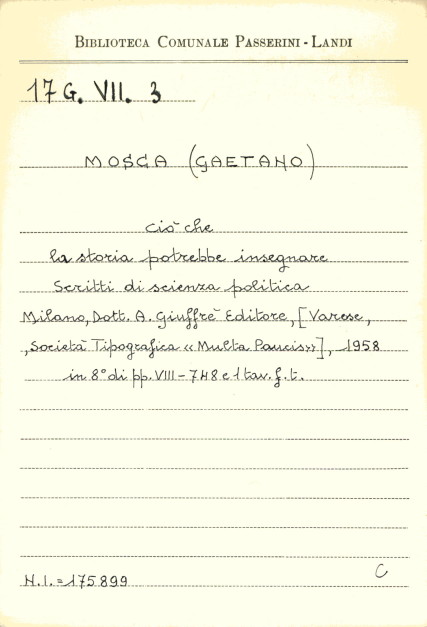 BIBLIOTECA COMUNALE PASSERINI-LANDI
17 G. VII. 3
MOSCA (GAETANO)
Ciò che
la storia potrebbe insegnare
Scritti di scienza politica
Milano, Dott. A. Giuffrè Editore, [Varese,
Società Tipografica «Multa Paucis»], 1958
in 8° di pp. VIII-748 e 1 tav. f. t.
N.I.=175899
C